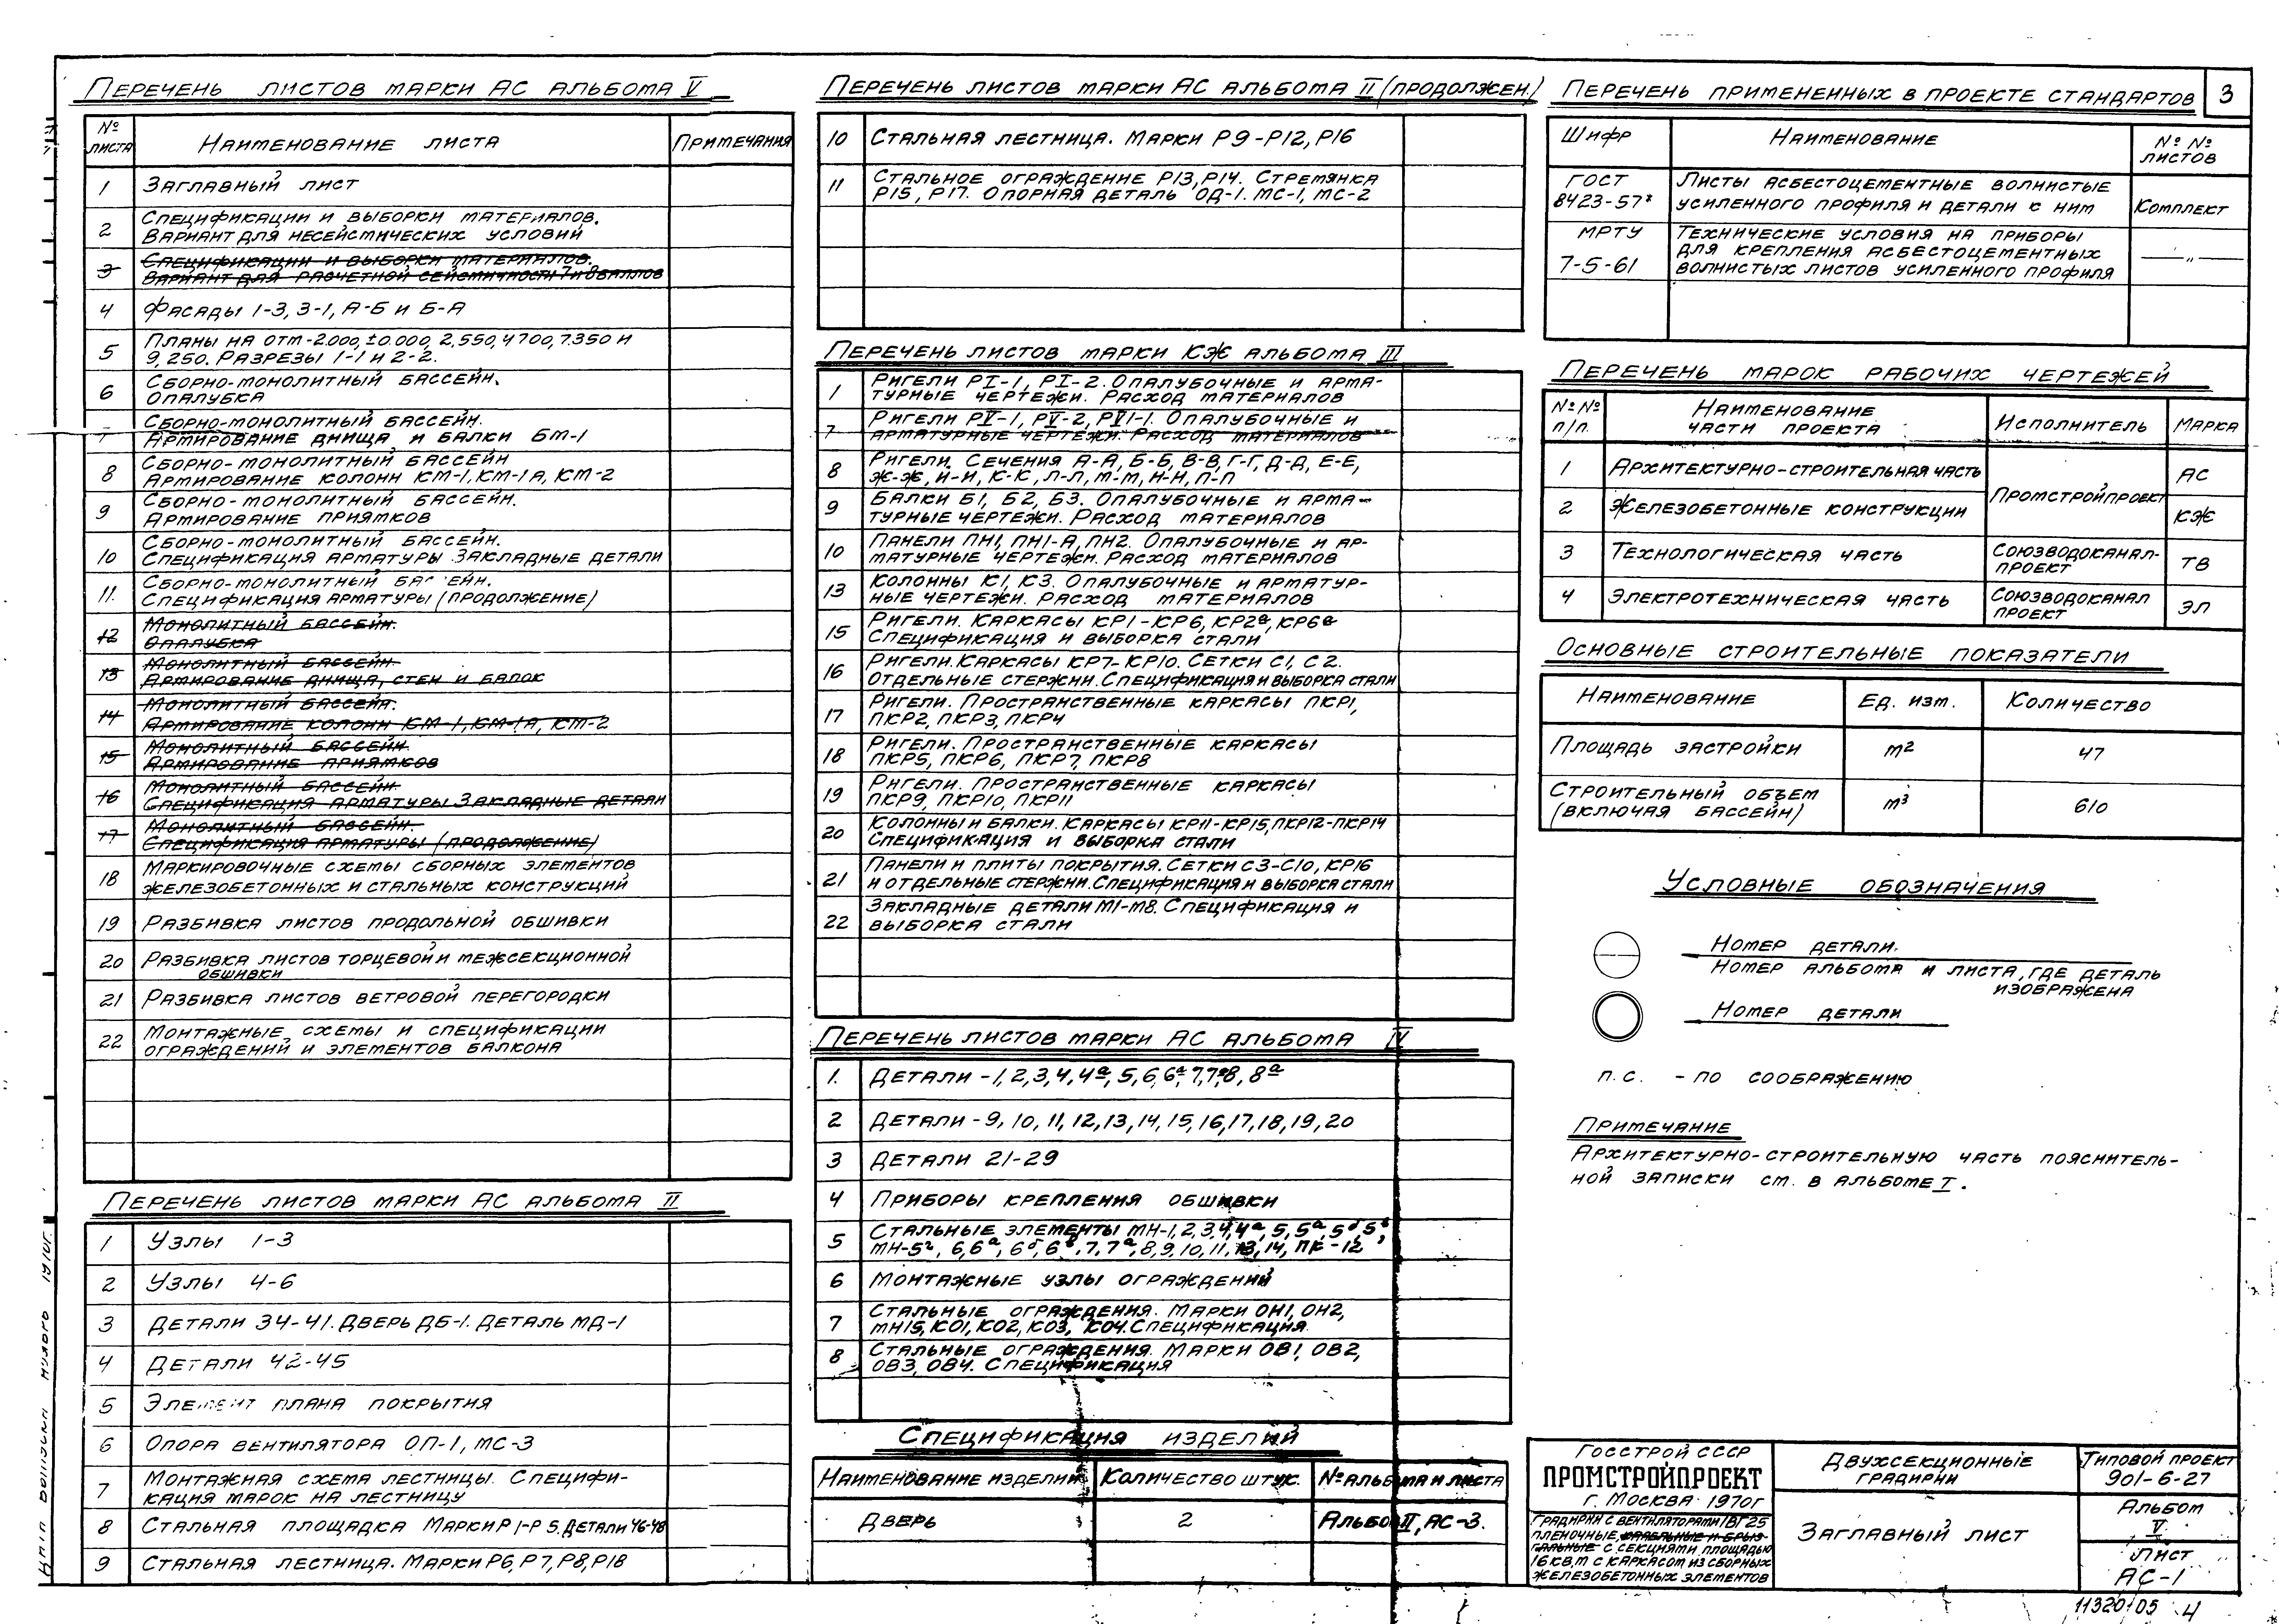 3
Перечень листов марки АС альбома V
№ листа
Наименование листа
Примечания
1 Заглавный лист
2 Спецификации и выборки материалов.
Вариант для несейсмических условий
3 Спецификации и выборки материалов.
Вариант для расчетной сейсмичности 7 и 8 баллов
4 Фасады 1-3, 3-1, А-Б и Б-А
5 Планы на отм -2.000, ±0.000, 2,550, 4700, 7.350 и
9,250. Разрезы 1-1 и 2-2.
6 Сборно-монолитный бассейн.
Опалубка
7 Сборно-монолитный бассейн.
Армирование днища и балки БМ-1
8 Сборно-монолитный бассейн
Армирование колонн КМ-1, КМ-1А, КМ-2
9 Сборно-монолитный бассейн.
Армирование приямков
10 Сборно-монолитный бассейн.
Спецификация арматуры. Закладные детали
11. Сборно-монолитный бассейн.
Спецификация арматуры (продолжение)
12 Монолитный бассейн.
Опалубка
13 Монолитный бассейн.
Армирование днища, стен и балок
14 Монолитный бассейн.
Армирование колонн КМ-1, КМ-1А, КМ-2
15 Монолитный бассейн.
Армирование приямков
16 Монолитный бассейн.
Спецификация арматуры Закладные детали
17 Монолитный бассейн.
Спецификация арматуры (продолжение)
18 Маркировочные схемы сборных элементов
железобетонных и стальных конструкций
19 Разбивка листов продольной обшивки
20 Разбивка листов торцевой и межсекционной
обшивки
21 Разбивка листов ветровой перегородки
22 Монтажные схемы и спецификации
ограждений и элементов балкона
Перечень листов марки АС альбома II
1 Узлы 1-3
2 Узлы 4-6
3 Детали 34-41. Дверь ДБ-1. Деталь МД-1
4 Детали 42-45
5 Элемент плана покрытия
6 Опора вентилятора ОП-1, МС-3
7 Монтажная схема лестницы. Специфи-
кация марок на лестницу
8 Стальная площадка Марки Р1-Р5. Детали 46-48
9 Стальная лестница. Марки Р6, Р7, Р8, Р18
Перечень листов марки АС альбома II (продолжен.)
10 Стальная лестница. Марки Р9-Р12, Р16
11 Стальное ограждение Р13, Р14. Стремянка
Р15, Р17. Опорная деталь ОД-1. МС-1, МС-2
Перечень листов марки КЖ альбома III
1 Ригели РI-1, РI-2. Опалубочные и арма-
турные чертежи. Расход материалов
7 Ригели РV-1, РV-2, РVI-1. Опалубочные и
арматурные чертежи. Расход материалов
8 Ригели. Сечения А-А, Б-Б, В-В, Г-Г, Д-Д, Е-Е,
Ж-Ж, И-И, К-К, Л-Л, М-М, Н-Н, П-П
9 Балки Б1, Б2, Б3. Опалубочные и арма-
турные чертежи. Расход материалов
10 Панели ПН1, ПН1-А, ПН2. Опалубочные и ар-
матурные чертежи. Расход материалов
13 Колонны К1, К3. Опалубочные и арматур-
ные чертежи. Расход материалов
15 Ригели. Каркасы КР1-КР6, КР2а, КР6а
Спецификация и выборка стали
16 Ригели. Каркасы КР7-КР10. Сетки С1, С2.
Отдельные стержни. Спецификация и выборка стали
17 Ригели. Пространственные каркасы ПКР1,
ПКР2, ПКР3, ПКР4
18 Ригели. Пространственные каркасы
ПКР5, ПКР6, ПКР7, ПКР8
19 Ригели. Пространственные каркасы
ПКР9, ПКР10, ПКР11
20 Колонны и балки. Каркасы КР11-КР15, ПКР12-ПКР14
Спецификация и выборка стали
21 Панели и плиты покрытия. Сетки С3-С10, КР16
и отдельные стержни. Спецификация и выборка стали
22 Закладные детали М1-М8. Спецификация и
выборка стали
Перечень листов марки АС альбома IV
1. Детали -1, 2, 3, 4, 4а, 5, 6, 6а, 7, 7а, 8, 8а
2 Детали -9, 10, 11, 12, 13, 14, 15, 16, 17, 18, 19, 20
3 Детали 21-29
4 Приборы крепления обшивки
5 Стальные элементы МН-1, 2, 3, 4, 4а, 5, 5а, 5б, 5в,
МН-5г, 6, 6а, 6б, 6в, 7, 7а, 8, 9, 10, 11, 13, 14, ПК-12
6 Монтажные узлы ограждений
7 Стальные ограждения. Марки ОН1, ОН2,
МН15, КО1, КО2, КО3, КО4. Спецификация.
8 Стальные ограждения. Марки ОВ1, ОВ2,
ОВ3, ОВ4. Спецификация
Спецификация изделий
Наименование изделий
Количество штук.
№ альбома и листа
Дверь 2 Альбом II, АС-3.
Перечень примененных в проекте стандартов
Шифр
Наименование
№ № листов
ГОСТ
8423-57*
Листы асбестоцементные волнистые
усиленного профиля и детали к ним
Комплект
МРТУ
7-5-61
Технические условия на приборы
для крепления асбестоцементных
волнистых листов усиленного профиля
—„—
Перечень марок рабочих чертежей
№ № п/п.
Наименование
части проекта
Исполнитель
Марка
1 Архитектурно-строительная часть
АС
Промстройпроект
2 Железобетонные конструкции
КЖ
3 Технологическая часть
Союзводоканал-
проект
ТВ
4 Электротехническая часть
Союзводоканал
проект
ЭЛ
Основные строительные показатели
Наименование Ед. изм. Количество
Площадь застройки м² 47
Строительный объем
(включая бассейн)
м³ 610
Условные обозначения
Номер детали.
Номер альбома и листа, где деталь
изображена
Номер детали
п.с. - по соображению
Примечание
Архитектурно-строительную часть пояснитель-
ной записки см. в альбоме I.
Госстрой СССР
ПРОМСТРОЙПРОЕКТ
г. Москва 1970г
Градирни с вентиляторами 1ВГ25
пленочные, капельные и брыз-
гальные с секциями площадью
16 кв.м с каркасом из сборных
железобетонных элементов
Двухсекционные
градирни
Заглавный лист
Типовой проект
901-6-27
Альбом
V
Лист
АС-1
11320/05 4